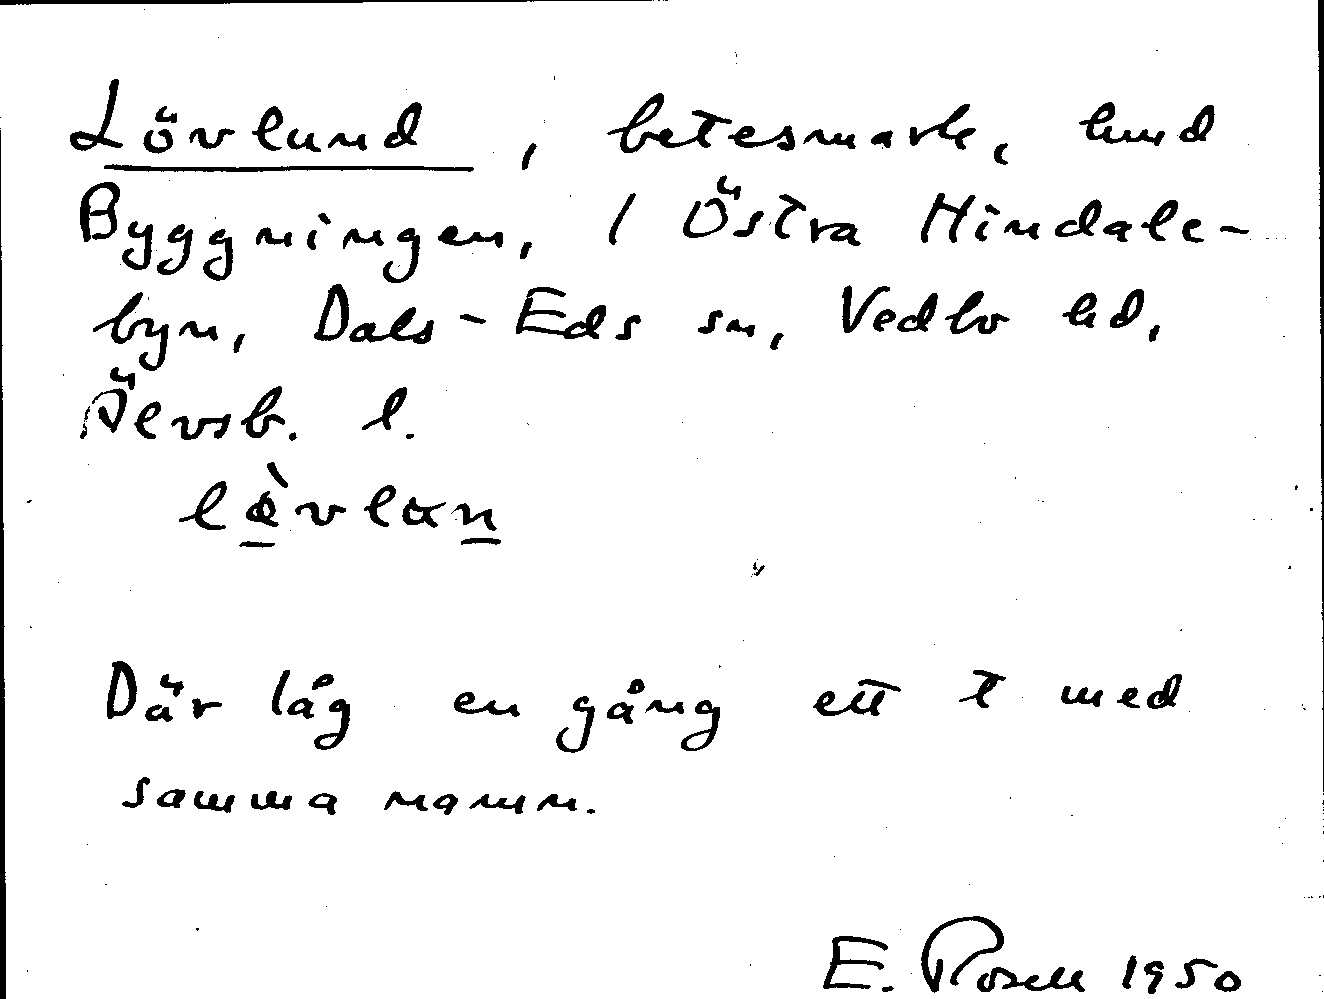 Lövlund, betesmark, hmd
Byggningen, 1 Östra Hindale-
byn, Dals-Eds sn, Vedbo hd,
Älvsb. l.
lö̀vlαn
Där låg en gång ett t med
samma namn.
E. Rosell 1950